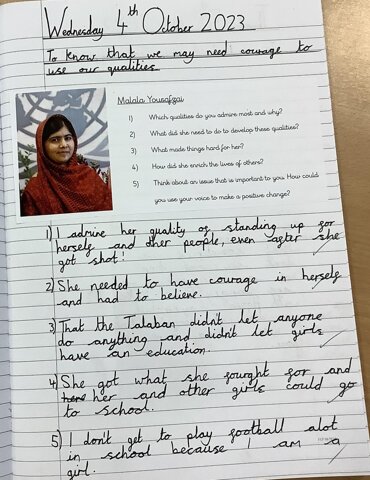 Wednesday 4th October 2023
To know that we may need courage to
use our qualities
Malala Yousafzai
1) Which qualities do you admire most and why?
2) What did she need to do to develop these qualities?
3) What made things hard for her?
4) How did she enrich the lives of others?
5) Think about an issue that is important to you. How could
you use your voice to make a positive change?
1) I admire her quality of standing up for
herself and other people, even after she
got shot!
2) She needed to have courage in herself
and had to believe.
3) That the Talaban didn't let anyone
do anything and didn't let girls
have an education.
4) She got what she fought for and
her and other girls could go
to school.
5) I don't get to play football alot
in school because I am a
girl.